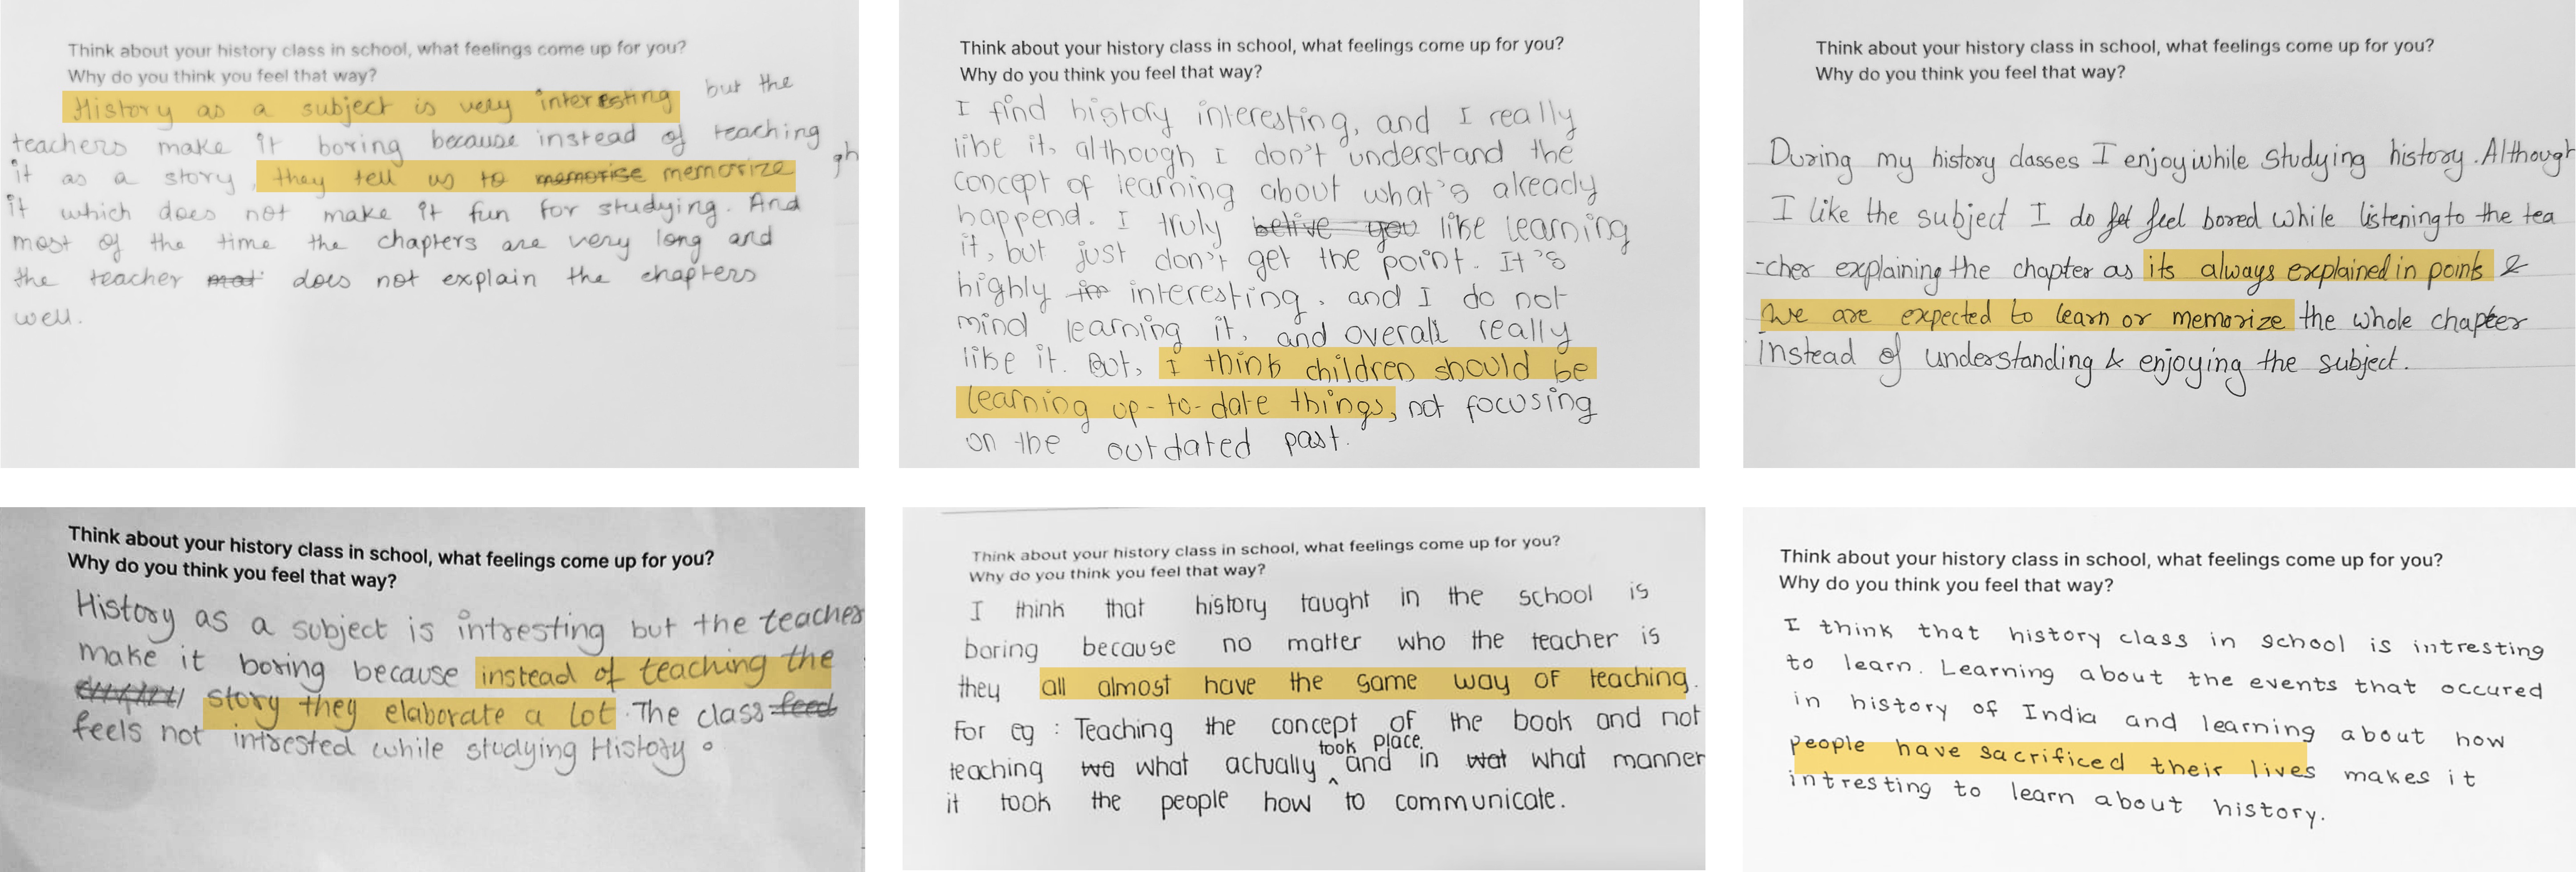 Think about your history class in school, what feelings come up for you?
Why do you think you feel that way?
History as a subject is very interesting but the
teachers make it boring because instead of teaching
it as a story, they tell us to memorise memorize
it which does not make it fun for studying. And
most of the time the chapters are very long and
the teacher does not explain the chapters
well.
gh
Think about your history class in school, what feelings come up for you?
Why do you think you feel that way?
I find history interesting, and I really
like it, although I don't understand the
concept of learning about what's already
happend. I truly belive you like learning
it, but just don't get the point. It's
highly in interesting, and I do not
mind learning it, and overall really
like it. But, I think children should be
learning up-to-date things, not focusing
on the outdated past.
Think about your history class in school, what feelings come up for you?
Why do you think you feel that way?
During my history classes I enjoy while studying history. Although
I like the subject I do feel bored while listening to the tea
-cher explaining the chapter as its always explained in points &
we are expected to learn or memorize the whole chapter
instead of understanding & enjoying the subject.
Think about your history class in school, what feelings come up for you?
Why do you think you feel that way?
History as a subject is intresting but the teacher
make it boring because instead of teaching the
story they elaborate a lot. The class feed
feels not intrested while studying History.
Think about your history class in school, what feelings come up for you?
Why do you think you feel that way?
I think that history taught in the school is
boring because no matter who the teacher is
they all almost have the same way of teaching.
For eg : Teaching the concept of the book and not
teaching wa what actually took place and in wat what manner
it took the people how to communicate.
Think about your history class in school, what feelings come up for you?
Why do you think you feel that way?
I think that history class in school is intresting
to learn. Learning about the events that occured
in history of India and learning about how
people have sacrificed their lives makes it
intresting to learn about history.